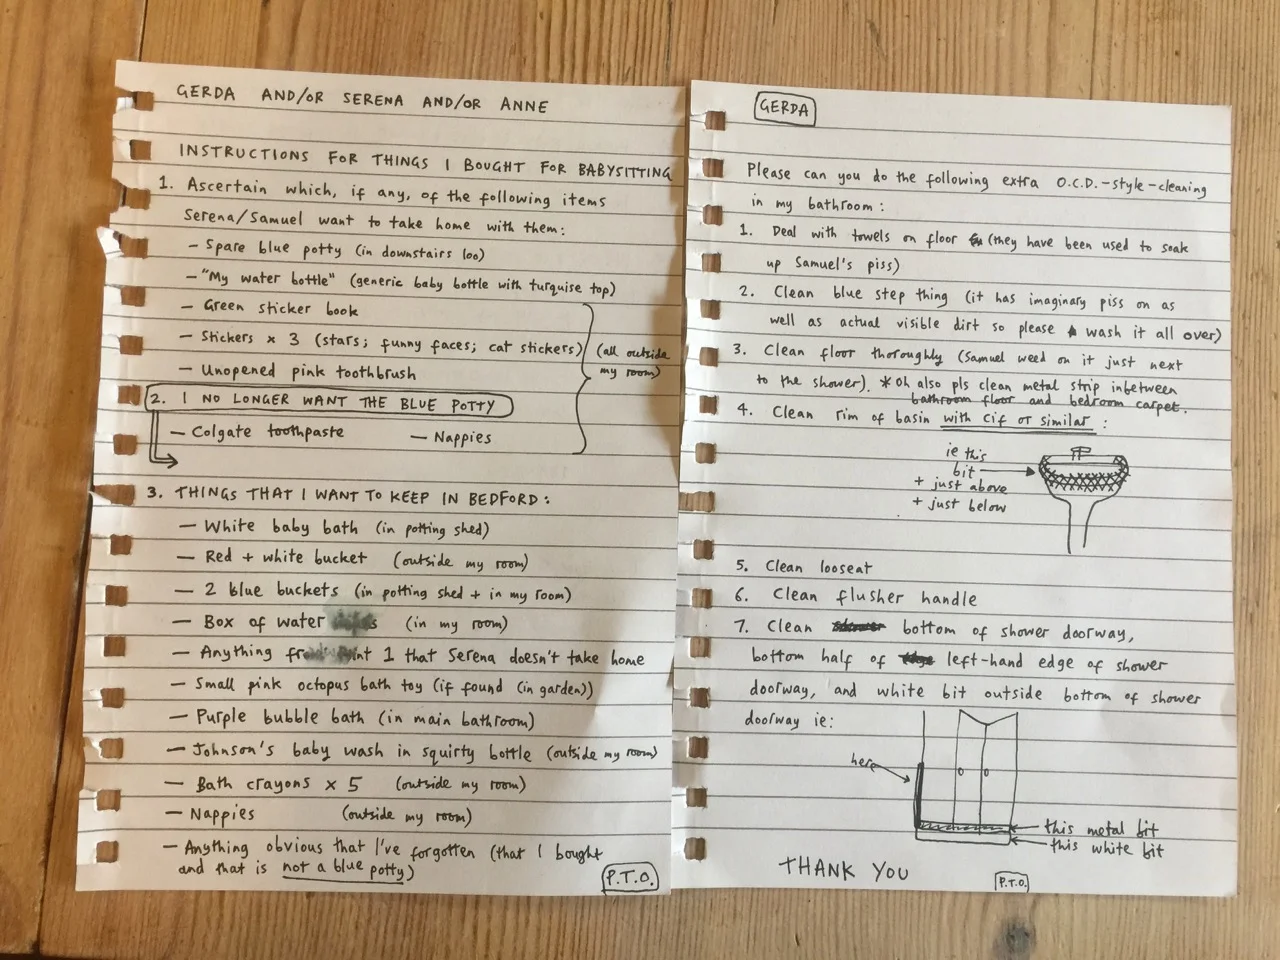 GERDA AND/OR SERENA AND/OR ANNE
INSTRUCTIONS FOR THINGS I BOUGHT FOR BABYSITTING
1. Ascertain which, if any, of the following items
Serena/Samuel want to take home with them:
– Spare blue potty (in downstairs loo)
– "My water bottle" (generic baby bottle with turquise top)
– Green sticker book
– Stickers x 3 (stars; funny faces; cat stickers)
(all outside my room)
– Unopened pink toothbrush
2. I NO LONGER WANT THE BLUE POTTY
– Colgate toothpaste – Nappies
3. THINGS THAT I WANT TO KEEP IN BEDFORD:
– White baby bath (in potting shed)
– Red + white bucket (outside my room)
– 2 blue buckets (in potting shed + in my room)
– Box of water (in my room)
– Anything 1 that Serena doesn't take home
– Small pink octopus bath toy (if found (in garden))
– Purple bubble bath (in main bathroom)
– Johnson's baby wash in squirty bottle (outside my room)
– Bath crayons x 5 (outside my room)
– Nappies (outside my room)
– Anything obvious that I've forgotten (that I bought
and that is not a blue potty)
P.T.O.
GERDA
Please can you do the following extra O.C.D.-style-cleaning
in my bathroom:
1. Deal with towels on floor (they have been used to soak
up Samuel's piss)
2. Clean blue step thing (it has imaginary piss on as
well as actual visible dirt so please wash it all over)
3. Clean floor thoroughly (Samuel weed on it just next
to the shower). * Oh also pls clean metal strip inbetween
bathroom floor and bedroom carpet.
4. Clean rim of basin with Cif or similar:
ie this
bit
+ just above
+ just below
5. Clean looseat
6. Clean flusher handle
7. Clean bottom of shower doorway,
bottom half of left-hand edge of shower
doorway, and white bit outside bottom of shower
doorway ie:
here
this metal bit
this white bit
THANK YOU
P.T.O.